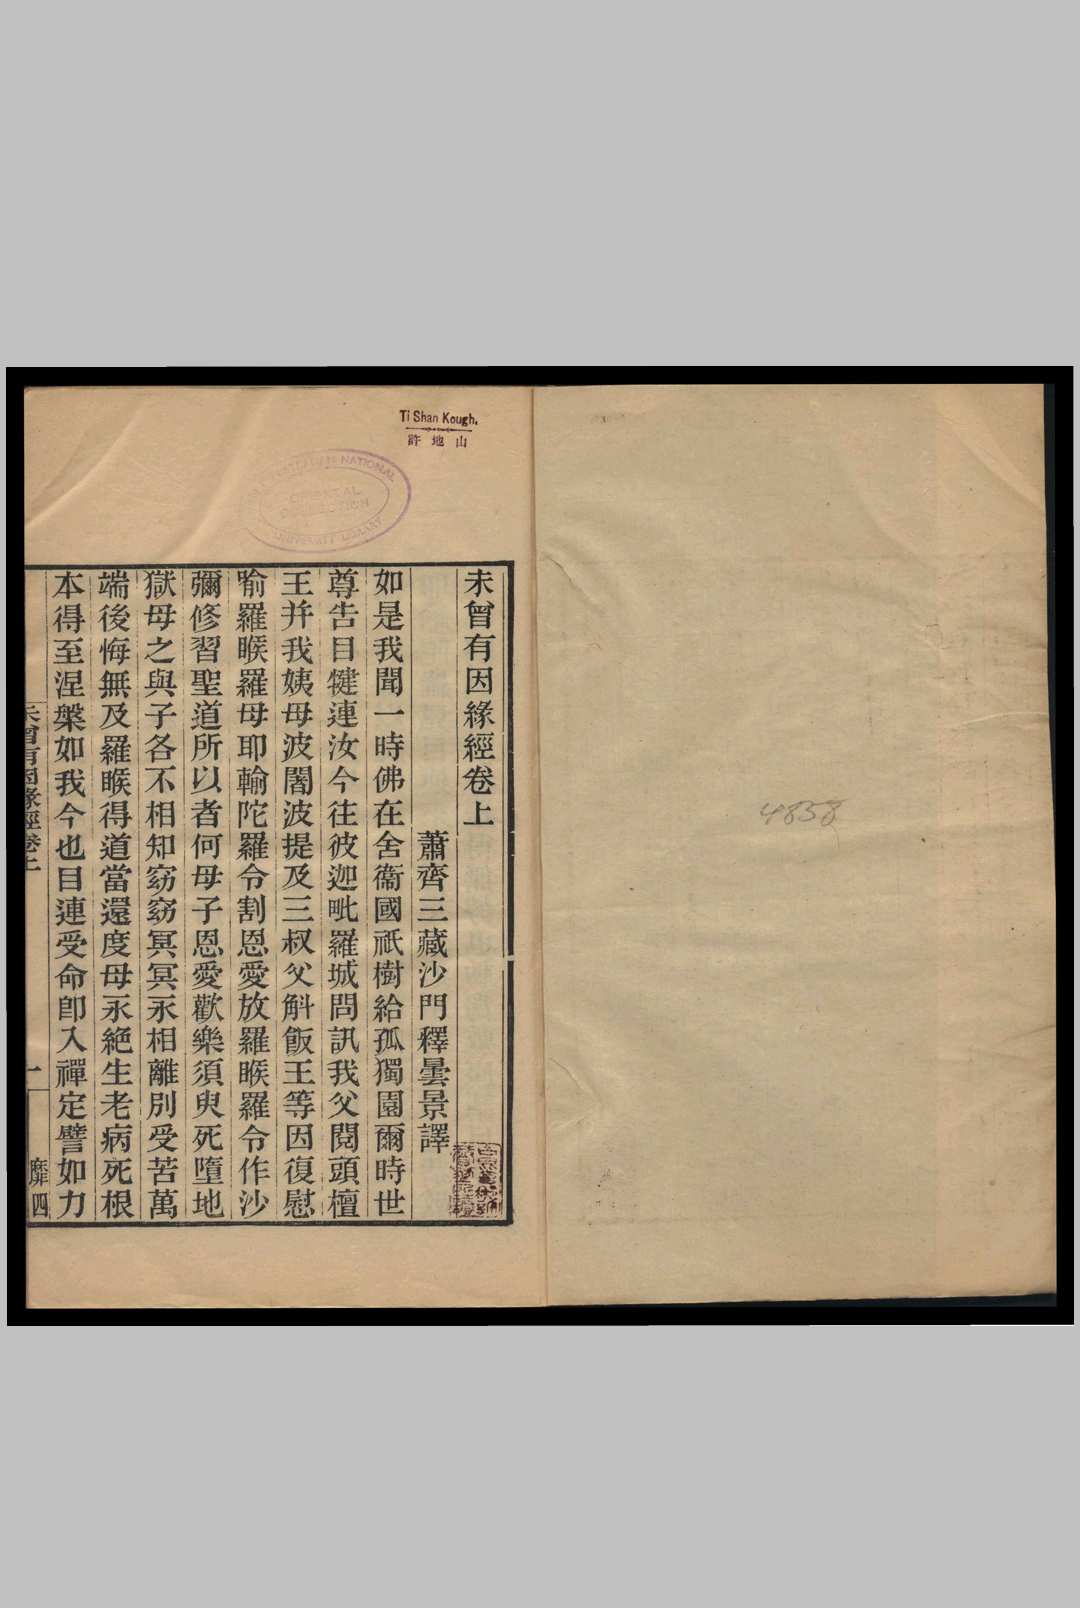 4858
Ti Shan Kough.
許地山
AUSTRALIAN NATIONAL
ORIENTAL
COLLECTION
UNIVERSITY LIBRARY
未曾有因緣經卷上
蕭齊三藏沙門釋曇景譯
如是我聞一時佛在舍衞國祇樹給孤獨園爾時世
尊告目犍連汝今往彼迦毗羅城問訊我父閱頭檀
王并我姨母波闍波提及三叔父斛飯王等因復慰
喻羅睺羅母耶輸陀羅令割恩愛放羅睺羅令作沙
彌修習聖道所以者何母子恩愛歡樂須臾死墮地
獄母之與子各不相知窈窈冥冥永相離別受苦萬
端後悔無及羅睺得道當還度母永絕生老病死根
本得至涅槃如我今也目連受命卽入禪定譬如力
未曾有因緣經卷上
一
靡四